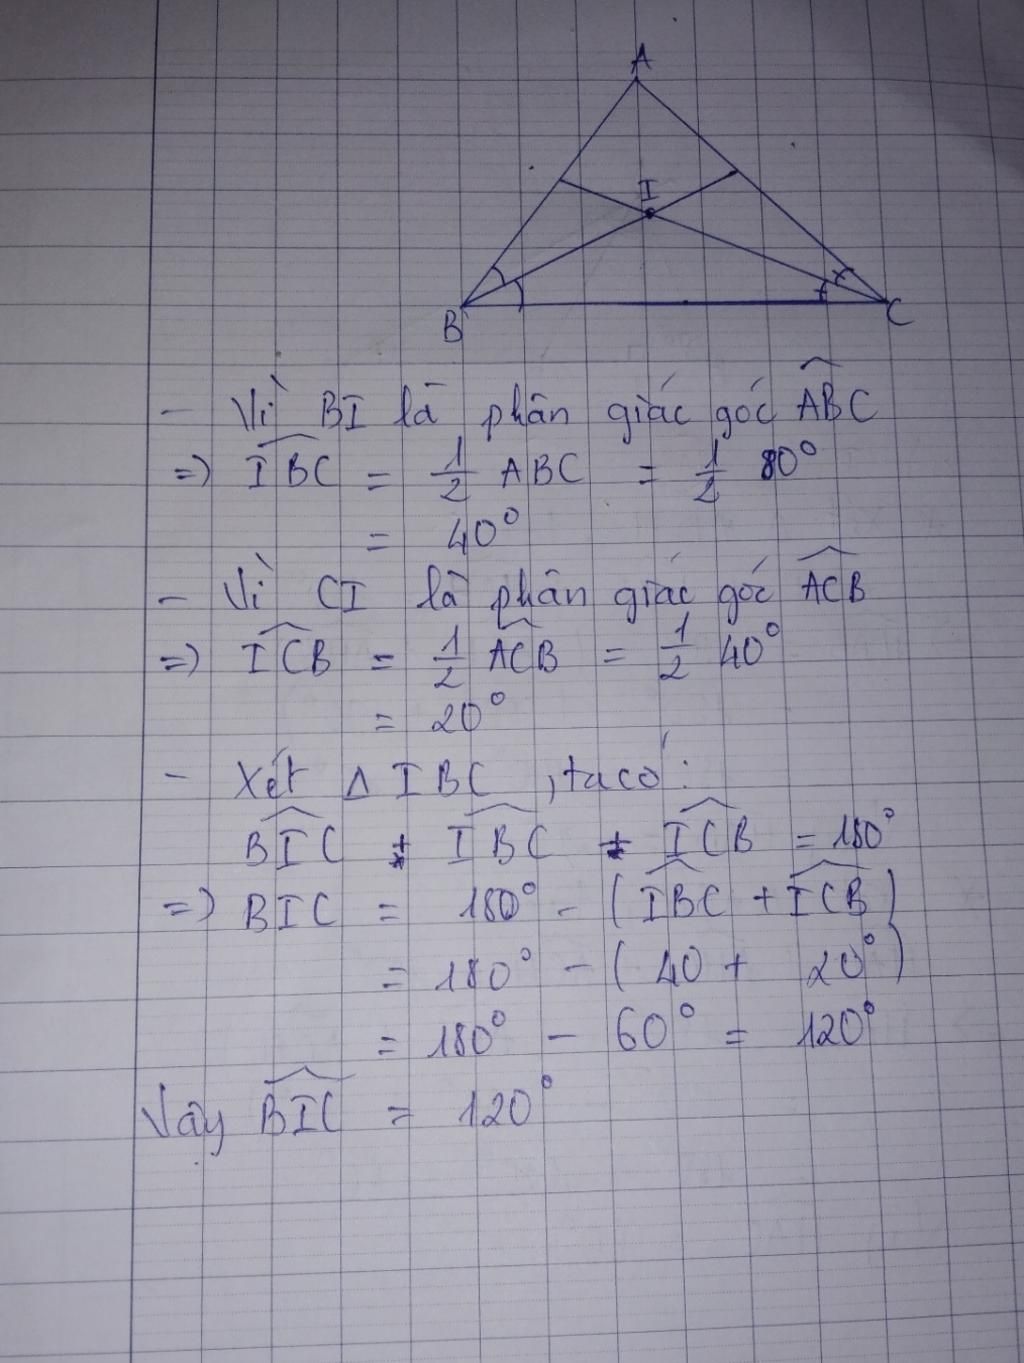 A
I
B
C
- Vì BI là phân giác góc \widehat{ABC}
=) \widehat{IBC} = \frac{1}{2} ABC = \frac{1}{2} 80°
= 40°
- Vì CI là phân giác góc \widehat{ACB}
=) \widehat{ICB} = \frac{1}{2} \widehat{ACB} = \frac{1}{2} 40°
= 20°
- Xét Δ IBC, ta có:
\widehat{BIC} + \widehat{IBC} + \widehat{ICB} = 180°
=) BIC = 180° - (\widehat{IBC} + \widehat{ICB})
= 180° - (40 + 20°)
= 180° - 60° = 120°
Vậy \widehat{BIC} = 120°